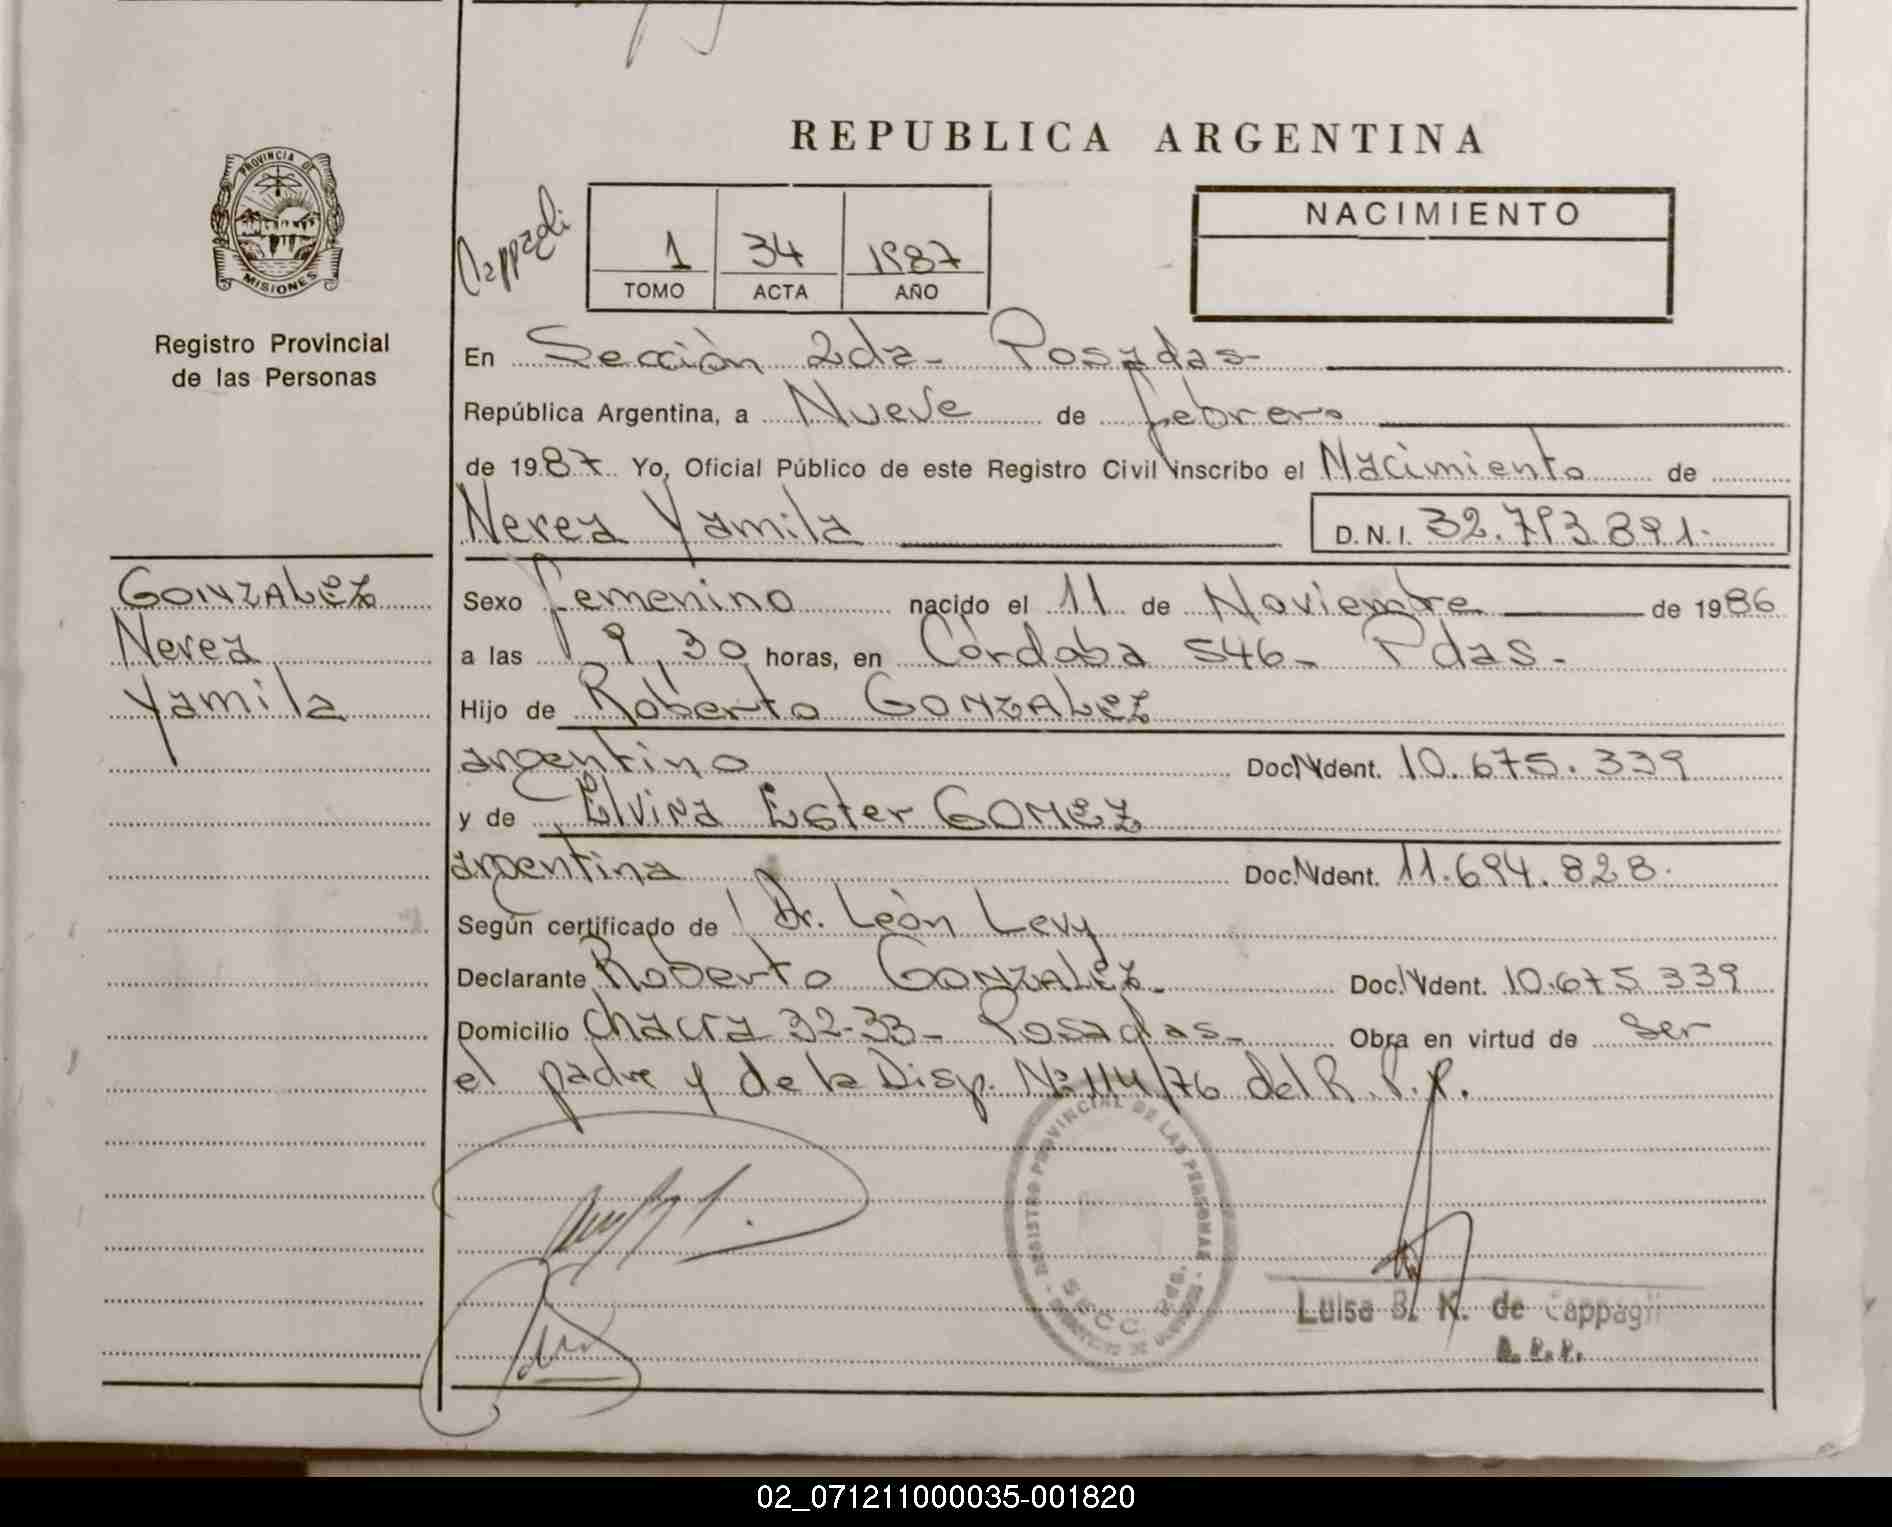 REPUBLICA ARGENTINA
PROVINCIA DE
MISIONES
Registro Provincial
de las Personas
Cappagli
1 34 1987
TOMO ACTA AÑO
NACIMIENTO
En Sección 2da- Posadas-
República Argentina, a Nueve de febrero
de 1987. Yo, Oficial Público de este Registro Civil inscribo el Nacimiento de
Nerea Yamila D.N.I. 32.793.891.
GONZALEZ
Nerea
Yamila
Sexo femenino nacido el 11 de Noviembre de 1986
a las 9,30 horas, en Córdoba 546- Pdas.-
Hijo de Roberto GONZALEZ
argentino Doc. Ident. 10.675.339
y de Elvira Ester GOMEZ
argentina Doc. Ident. 11.694.828.
Según certificado de Dr. León Levy
Declarante Roberto GONZALEZ- Doc. Ident. 10.675.339
Domicilio Chacra 32-33- Posadas- Obra en virtud de ser
el padre y de la Disp. Nº 114/76 del R.P.P.
REGISTRO PROVINCIAL DE LAS PERSONAS
SECC. 2da.
Luisa B. K. de Cappagli
02_071211000035-001820